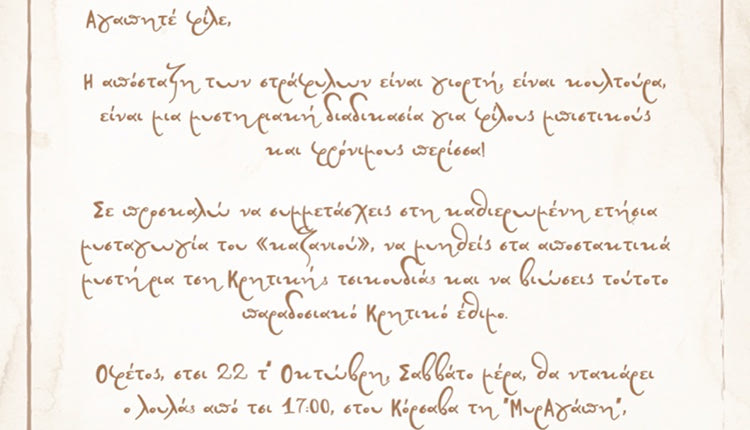 Αγαπητέ φίλε,
Η απόσταξη των στράφυλων είναι γιορτή, είναι κουλτούρα,
είναι μια μυστηριακή διαδικασία για φίλους μπιστικούς
και φρόνιμους περίσσα!
Σε προσκαλώ να συμμετάσχεις στη καθιερωμένη ετήσια
μυσταγωγία του «καζανιού», να μυηθείς στα αποστακτικά
μυστήρια τση Κρητικής τσικουδιάς και να βιώσεις τούτοτο
παραδοσιακό Κρητικό έθιμο.
Οφέτος, στσι 22 τ' Οκτώβρη, Σαββάτο μέρα, θα ντακάρει
ο λουλάς από τσι 17:00, στου Κόρσαβα τη "ΜυρΑγάπη",